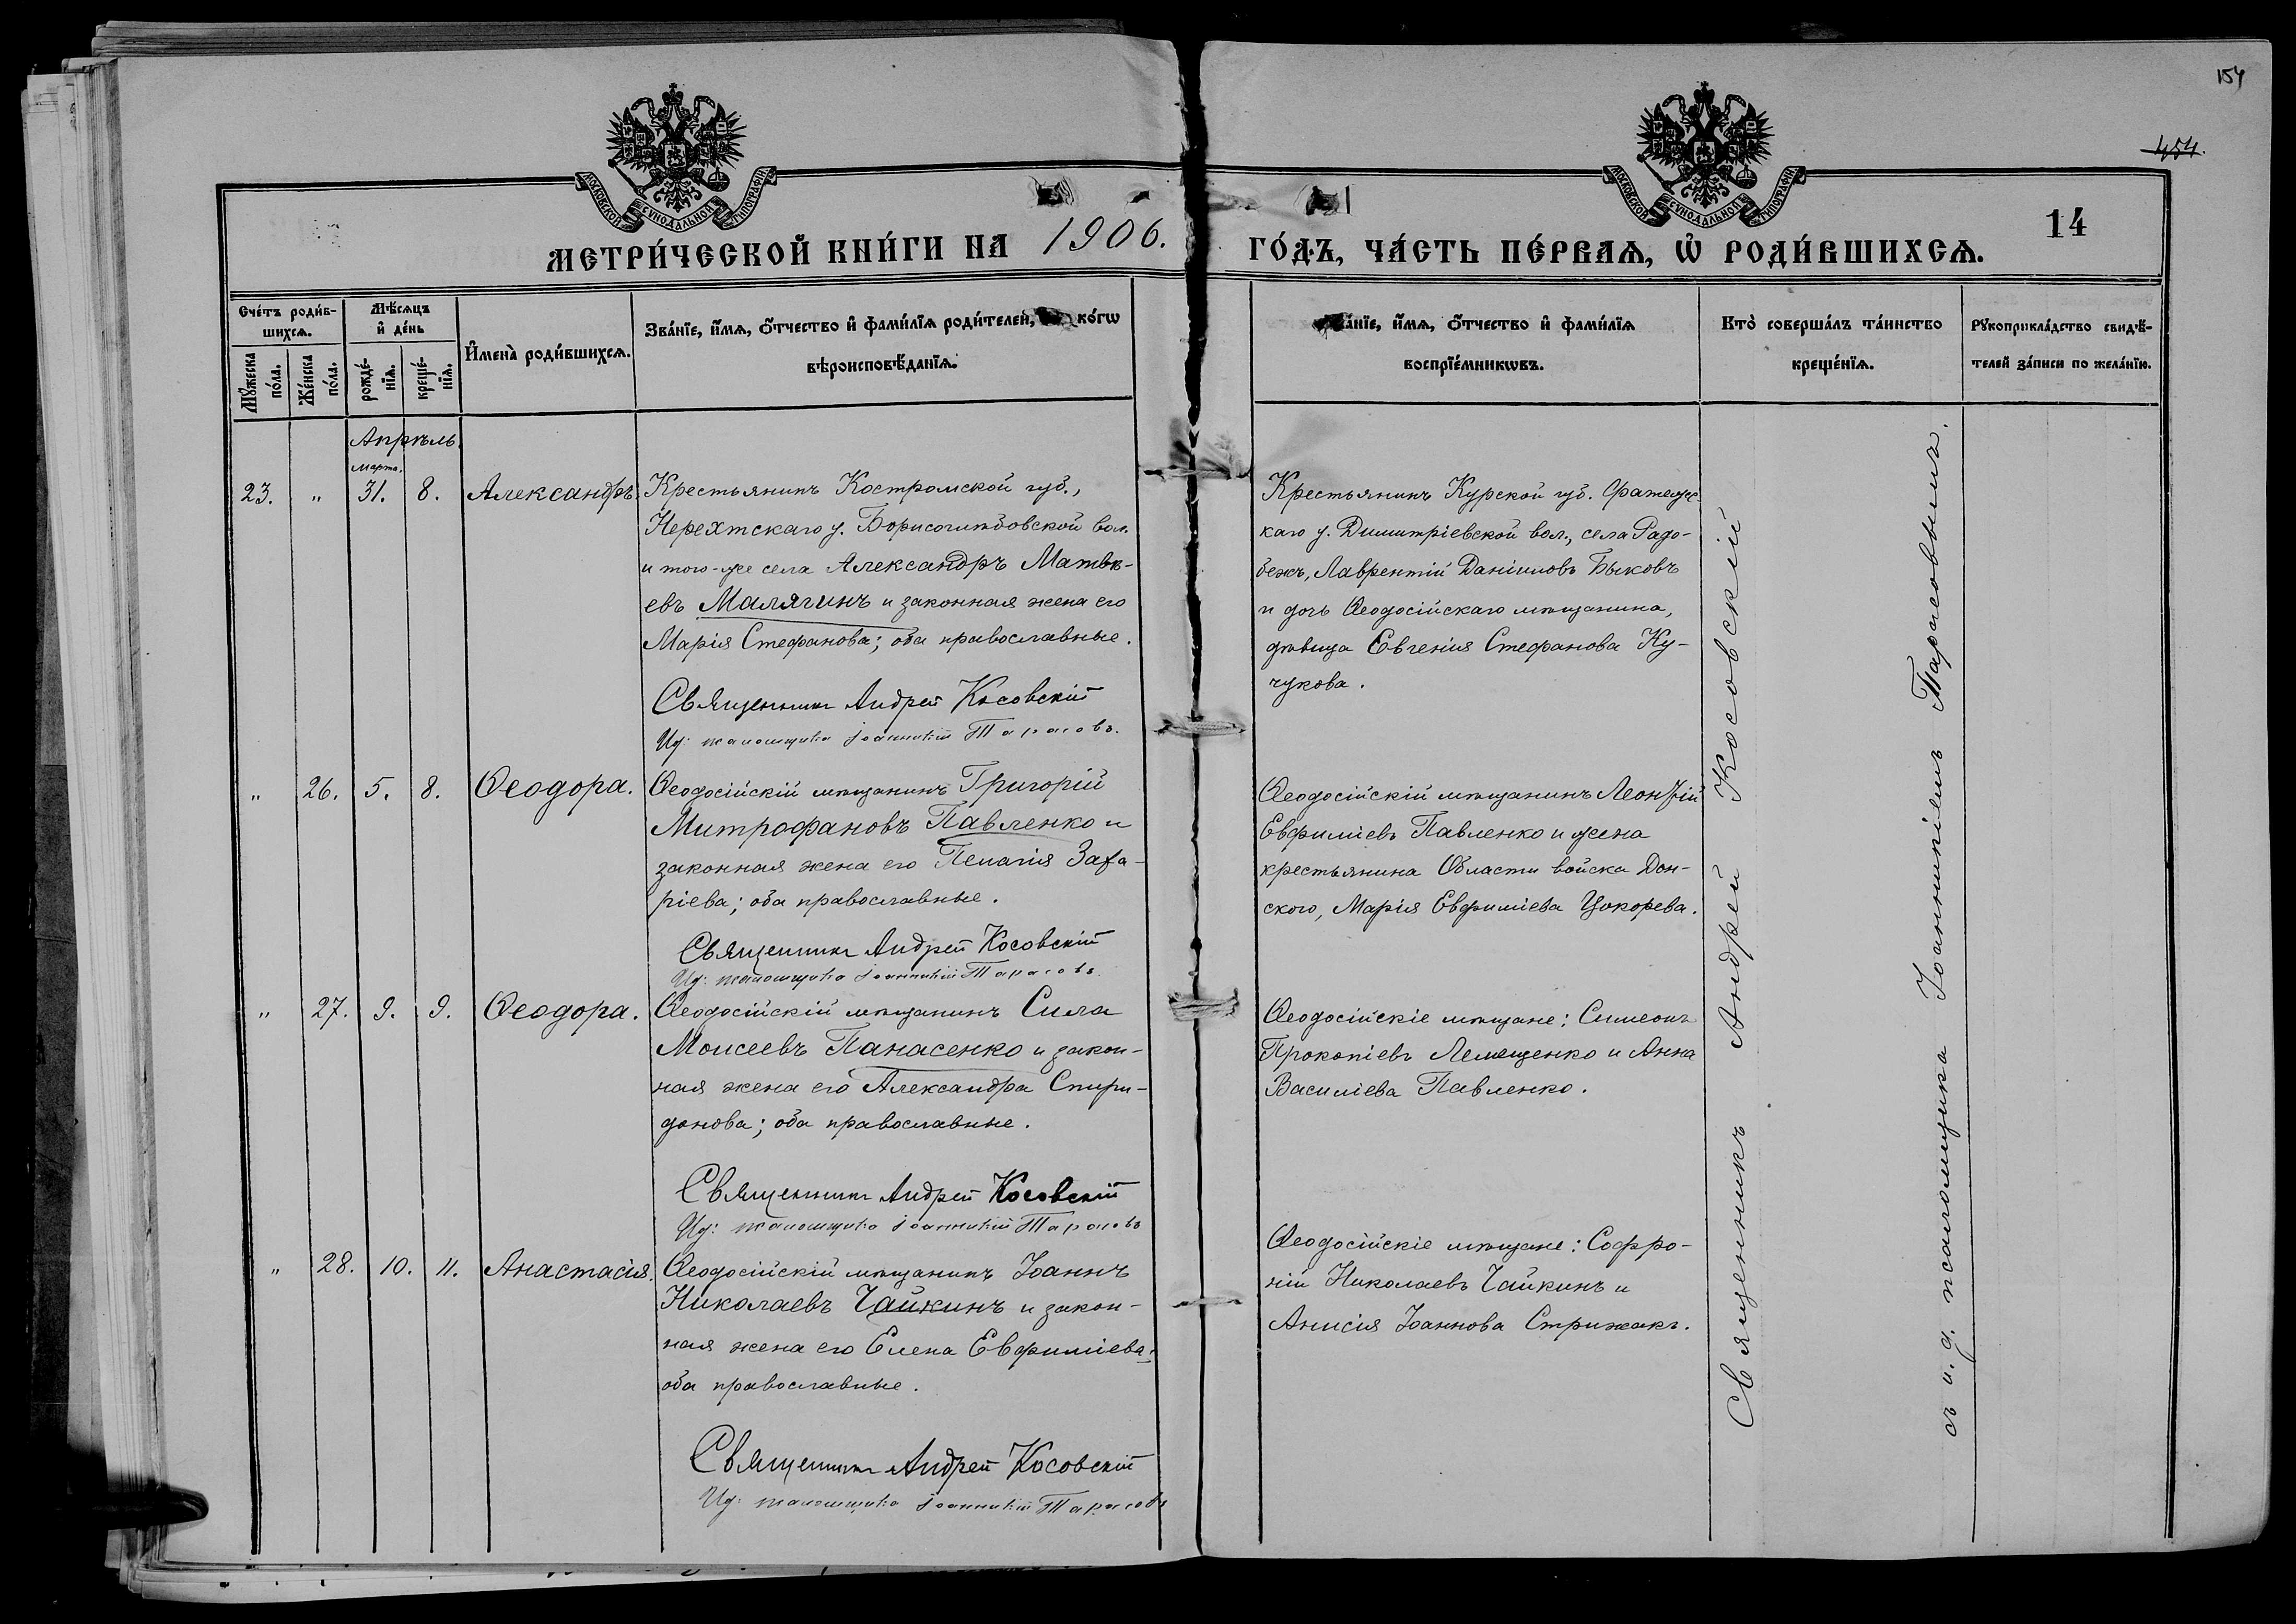 154
454.
14
МОСКОВСКОЙ СѴНОДАЛЬНОЙ ТИПОГРАФІИ
МОСКОВСКОЙ СѴНОДАЛЬНОЙ ТИПОГРАФІИ
МЕТРИ́ЧЕСКОЙ КНИ́ГИ НА 1906. ГО́ДЪ, ЧА́СТЬ ПЕ́РВАѦ, Ѡ҆ РОДИ́ВШИХСѦ.
Сче́тъ роди́в-
шихсѧ.
Мꙋ́жеска по́ла.
Же́нска по́ла.
Мѣ́сѧцъ
и҆ де́нь
рожде́-
нїѧ.
креще́-
нїѧ.
И҆мена̀ роди́вшихсѧ.
Зва́нїе, и҆́мѧ, ѻ҆́тчество и҆ фами́лїѧ роди́телей, ко́гѡ
вѣроисповѣ́данїѧ.
а́нїе, и҆́мѧ, ѻ҆́тчество и҆ фами́лїѧ
воспрїе́мникѡвъ.
Кто̀ соверша́лъ та́инство
креще́нїѧ.
Рꙋкоприкла́дство свидѣ́-
телей за́писи по жела́нїю.
Апрѣль.
Марта.
23. " 31. 8. Александръ.
Крестьянинъ Костромской губ.,
Нерехтскаго у. Борисоглѣбовской вол.
и того-же села Александръ Матвѣ-
евъ Малягинъ и законная жена его
Марія Стефанова; оба православные.
Священникъ Андрей Косовскій
И.д. псаломщика Іоанникій Тарасовъ.
Крестьянинъ Курской губ. Фатежс-
каго у. Димитріевской вол., села Радо-
бежъ, Лаврентій Даніиловъ Быковъ
и дочь Ѳеодосійскаго мѣщанина,
дѣвица Евгенія Стефанова Ку-
чукова.
" 26. 5. 8. Ѳеодора.
Ѳеодосійскій мѣщанинъ Григорій
Митрофановъ Павленко и
законная жена его Пелагія Заха-
ріева; оба православные.
Священникъ Андрей Косовскій
И.д. псаломщика Іоанникій Тарасовъ.
Ѳеодосійскій мѣщанинъ Леонтій
Евфиміевъ Павленко и жена
крестьянина Области войска Дон-
ского, Марія Евфиміева Цокорева.
" 27. 9. 9. Ѳеодора.
Ѳеодосійскій мѣщанинъ Сила
Моисеевъ Панасенко и закон-
ная жена его Александра Спири-
донова; оба православные.
Священникъ Андрей Косовскій
И.д. псаломщика Іоанникій Тарасовъ
Ѳеодосійскіе мѣщане: Симеонъ
Прокопіевъ Лемещенко и Анна
Василіева Павленко.
" 28. 10. 11. Анастасія.
Ѳеодосійскій мѣщанинъ Іоаннъ
Николаевъ Чайкинъ и закон-
ная жена его Елена Евфиміева;
оба православные.
Священникъ Андрей Косовскій
И.д. псаломщика Іоанникій Тарасовъ
Ѳеодосійскіе мѣщане: Софро-
ній Николаевъ Чайкинъ и
Анисія Іоаннова Стрижакъ.
Священникъ Андрей Косовскій
съ и.д. псаломщика Іоанникіемъ Тарасовымъ.